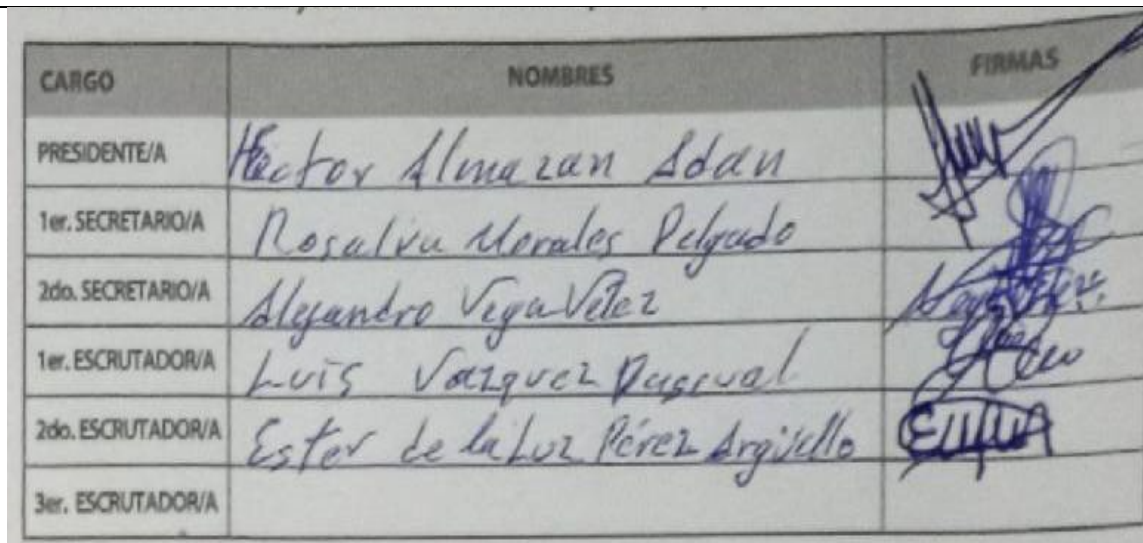 CARGO NOMBRES FIRMAS
PRESIDENTE/A Héctor Almazan Adan
1er. SECRETARIO/A Rosalva Morales Delgado
2do. SECRETARIO/A Alejandro Vega Vélez
1er. ESCRUTADOR/A Luis Vazquez Pascual
2do. ESCRUTADOR/A Ester de la Luz Pérez Argüello
3er. ESCRUTADOR/A